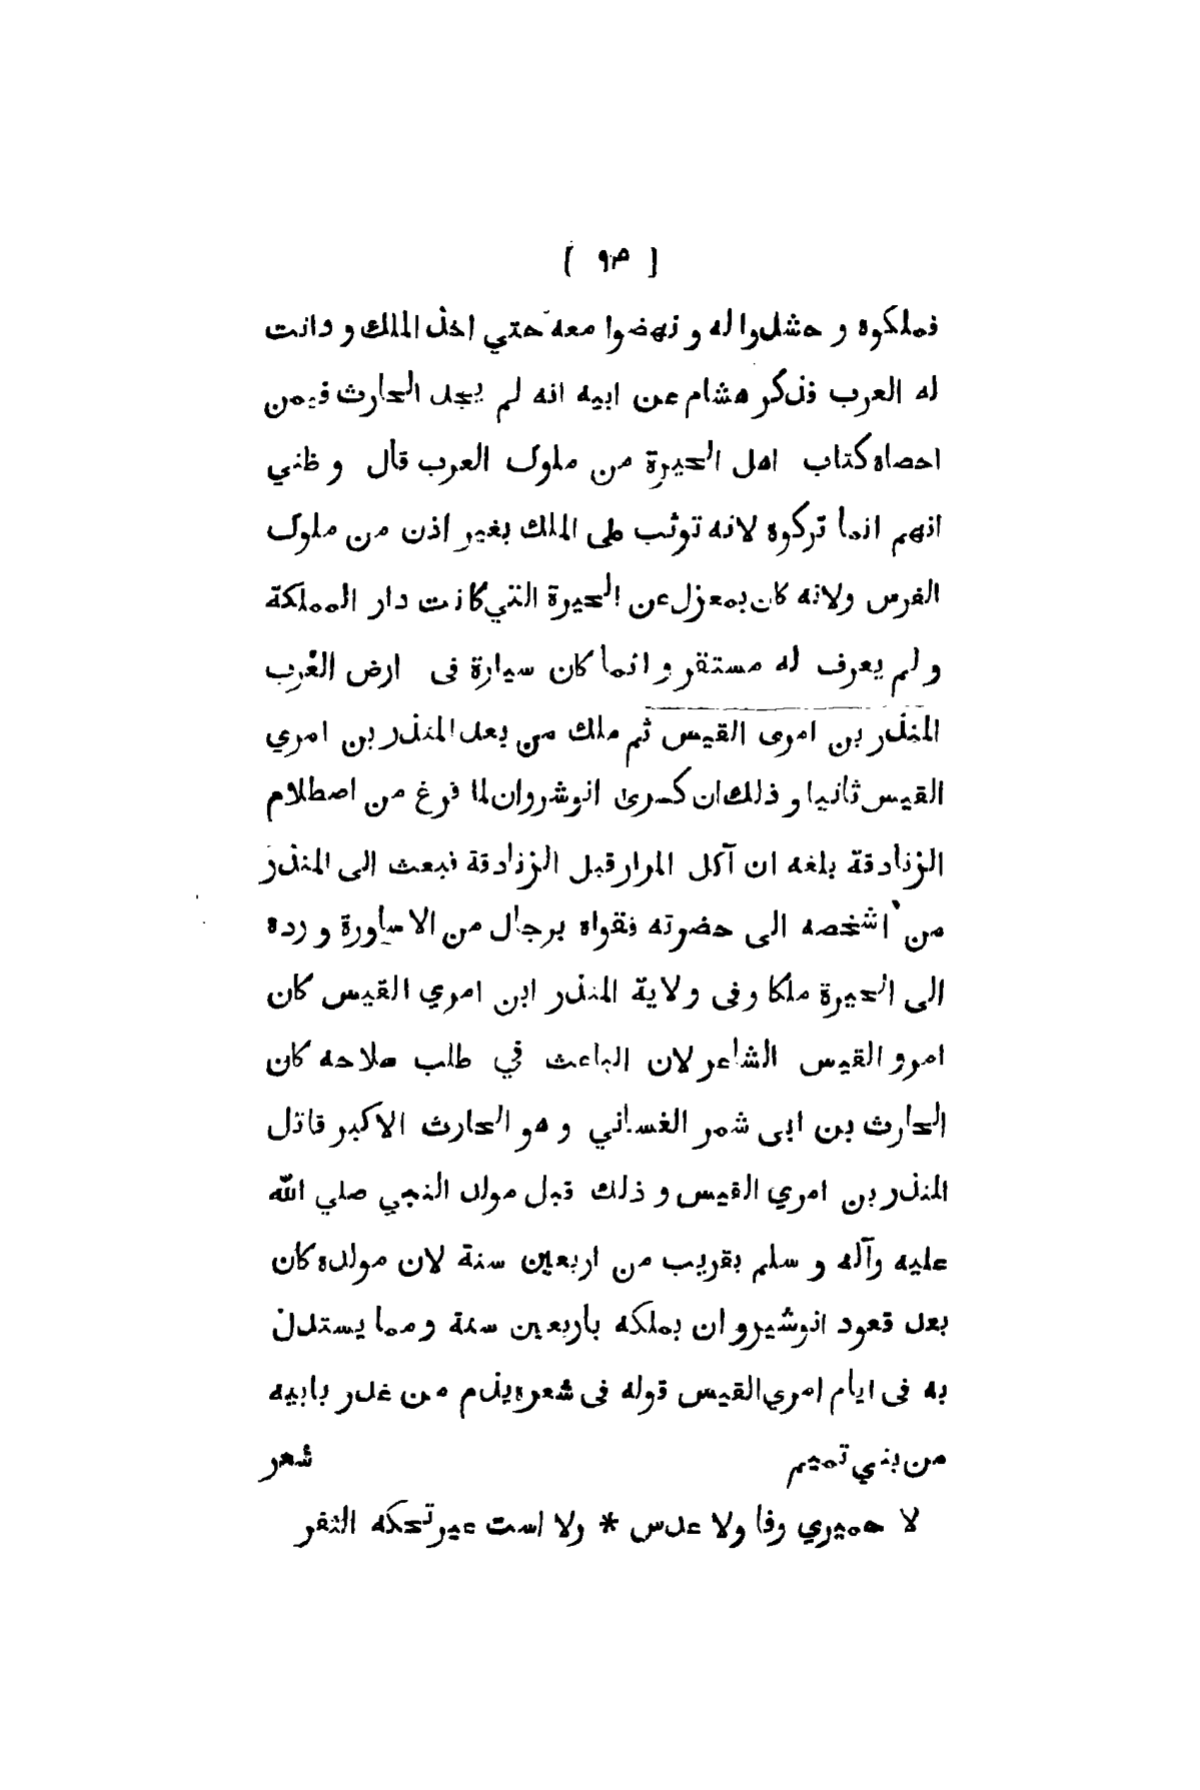 [ ٩٣ ]
فملكوه و حشدوا له و نهضوا معه حتي اخذ الملك و دانت
له العرب فذكر هشام عن ابيه انه لم يجد الحارث فيمن
احصاه كتاب اهل الحيرة من ملوك العرب قال و ظني
انهم انما تركوه لانه توثب على الملك بغير اذن من ملوك
الفرس ولانه كان بمعزل عن الحيرة التي كانت دار المملكة
و لم يعرف له مستقر و انما كان سيارة فى ارض العرب
المنذر بن امرى القيس ثم ملك من بعد المنذر بن امري
القيس ثانيا و ذلك ان كسرى انوشروان لما فرغ من اصطلام
الزنادقة بلغه ان آكل المرار قبل الزنادقة فبعث الى المنذر
من اشخصه الى حضرته فقواه برجال من الاساورة و رده
الى الحيرة ملكا وفى ولاية المنذر ابن امري القيس كان
امرو القيس الشاعر لان الباعث في طلب صلاحه كان
الحارث بن ابى شمر الغساني و هو الحارث الاكبر قاتل
المنذر بن امري القيس و ذلك قبل مولد النبي صلي الله
عليه وآله و سلم بقريب من اربعين سنة لان مولده كان
بعد قعود انوشيروان بملكه باربعين سنة ومما يستدل
به فى ايام امري القيس قوله فى شعره يذم من غدر بابيه
من بني تميم شعر
لا حميري وفا ولا عدس * ولا است عير تحكه الثفر